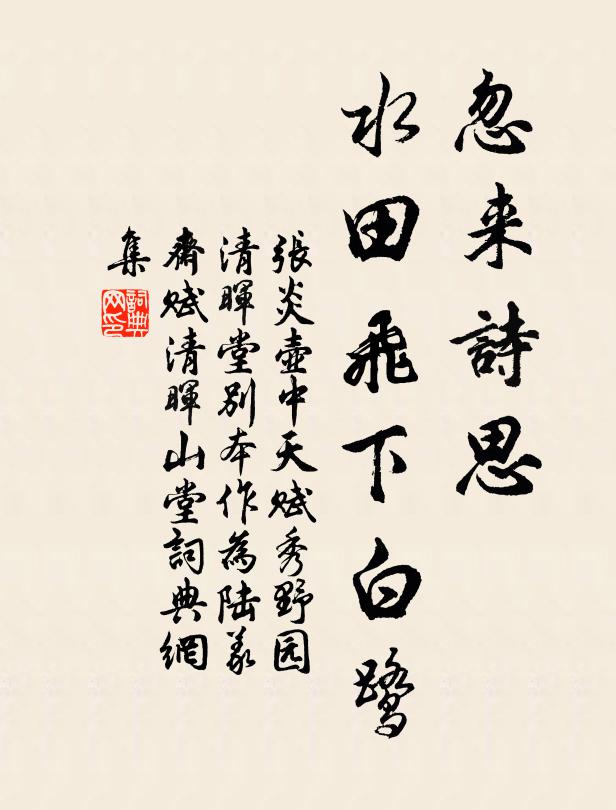 忽来詩思
水田飛下白鷺
張炎壺中天賦秀野园
清暉堂别本作為陆義
齋賦清暉山堂詞典網
集
詞典
网印